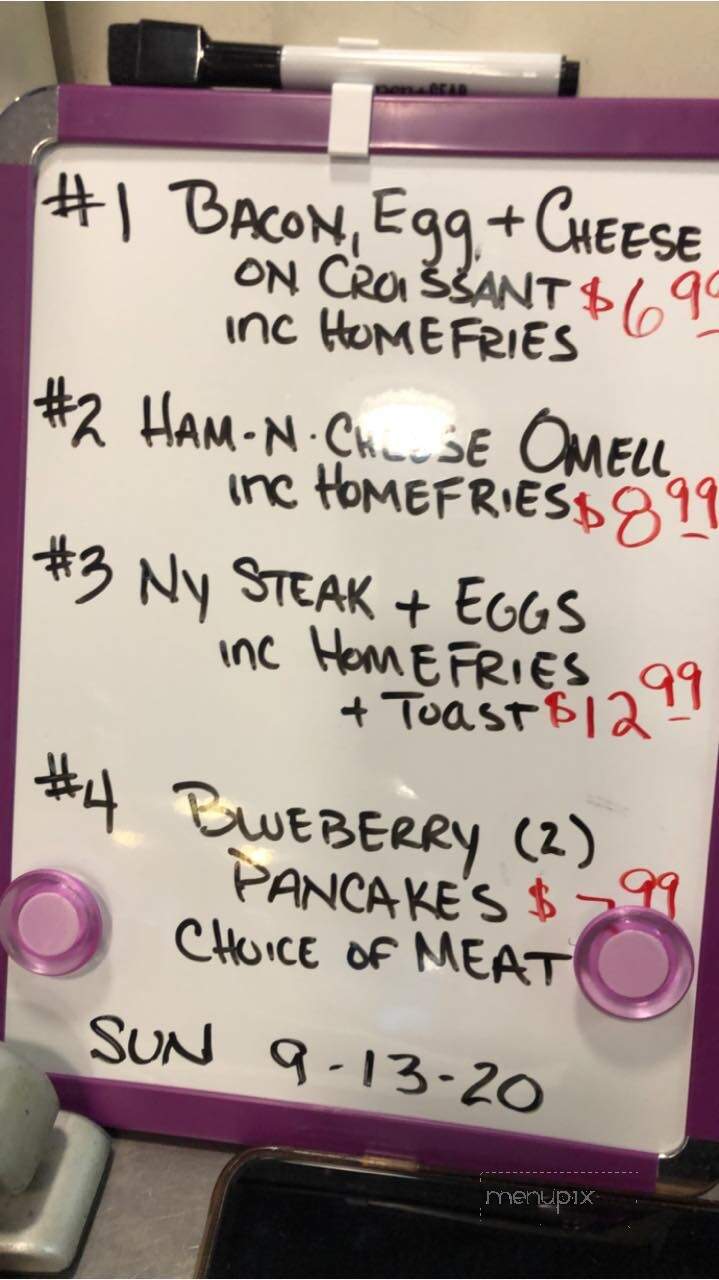 #1 BACON, Egg + CHEESE
ON CROISSANT $6 99
inc HOMEFRIES
#2 HAM-N-CHEESE OMELL
inc HOMEFRIES $8 99
#3 NY STEAK + EGGS
inc HOMEFRIES
+ TOAST $12 99
#4 BLUEBERRY (2)
PANCAKES $7 99
CHOICE OF MEAT
SUN 9-13-20
menupix